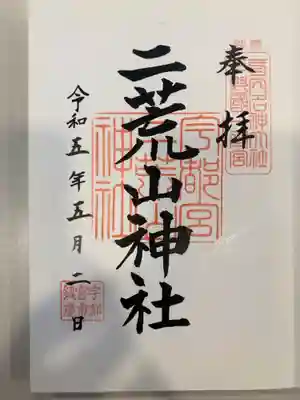 奉拝
二荒山神社
宇都宮
二荒山
神社
令和五年五月二日